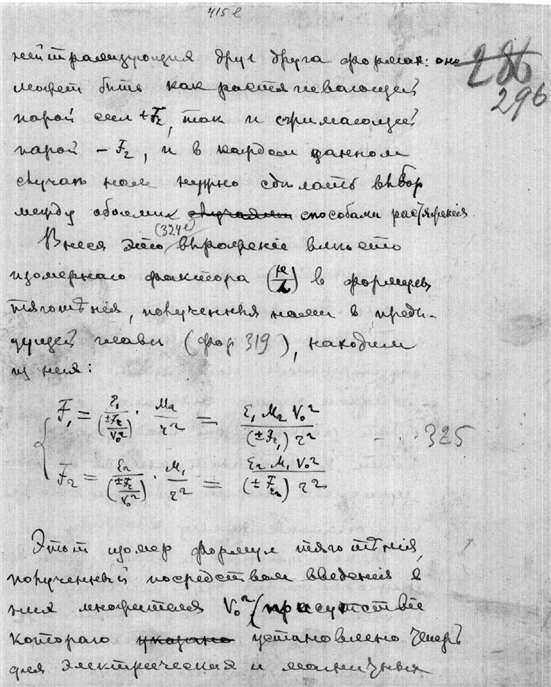 415 е
нейтрализующия друг друга формах: оне 286
может быть как растягевающей 296
парой сил +F₂, так и сжимающей
парой – F₂, и в каждом данном
случае нам нужно сделать выбор
между обоими случаями способами растяжения
Внеся это (324) выражение вместо
изомернаго фактора в формулы
тяготѣнія, полученныя нами в преды-
дущей главы (фор 319), находим
из нея:
F₁ = ε₁/(±F₂/V₀²) · M₂/r² = ε₁ M₂ V₀²/(± F₂) r²
325
F₂ = ε₂/(±F₂/V₀²) · M₁/r² = ε₂ M₁ V₀²/(± F₂) r²
Этот изомер формул тяготѣнія,
полученный посредством введения в
них множителя V₀² (присутствіе
котораго указано установлено теперь
для электрических и магнитных